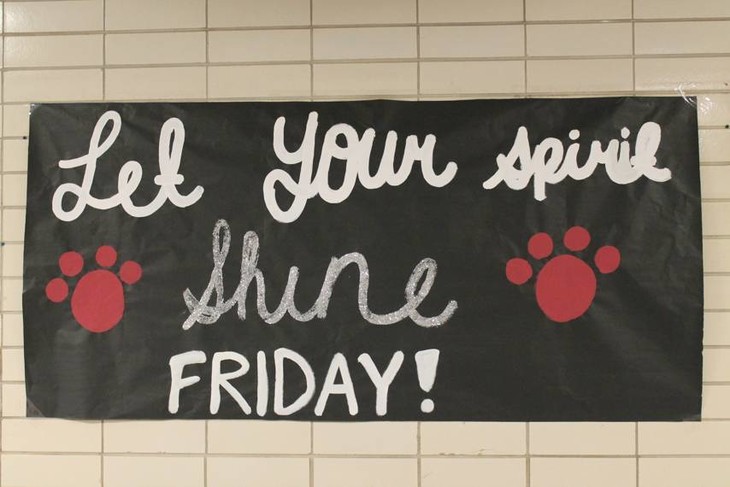 Let Your spirit
Shine
FRIDAY!